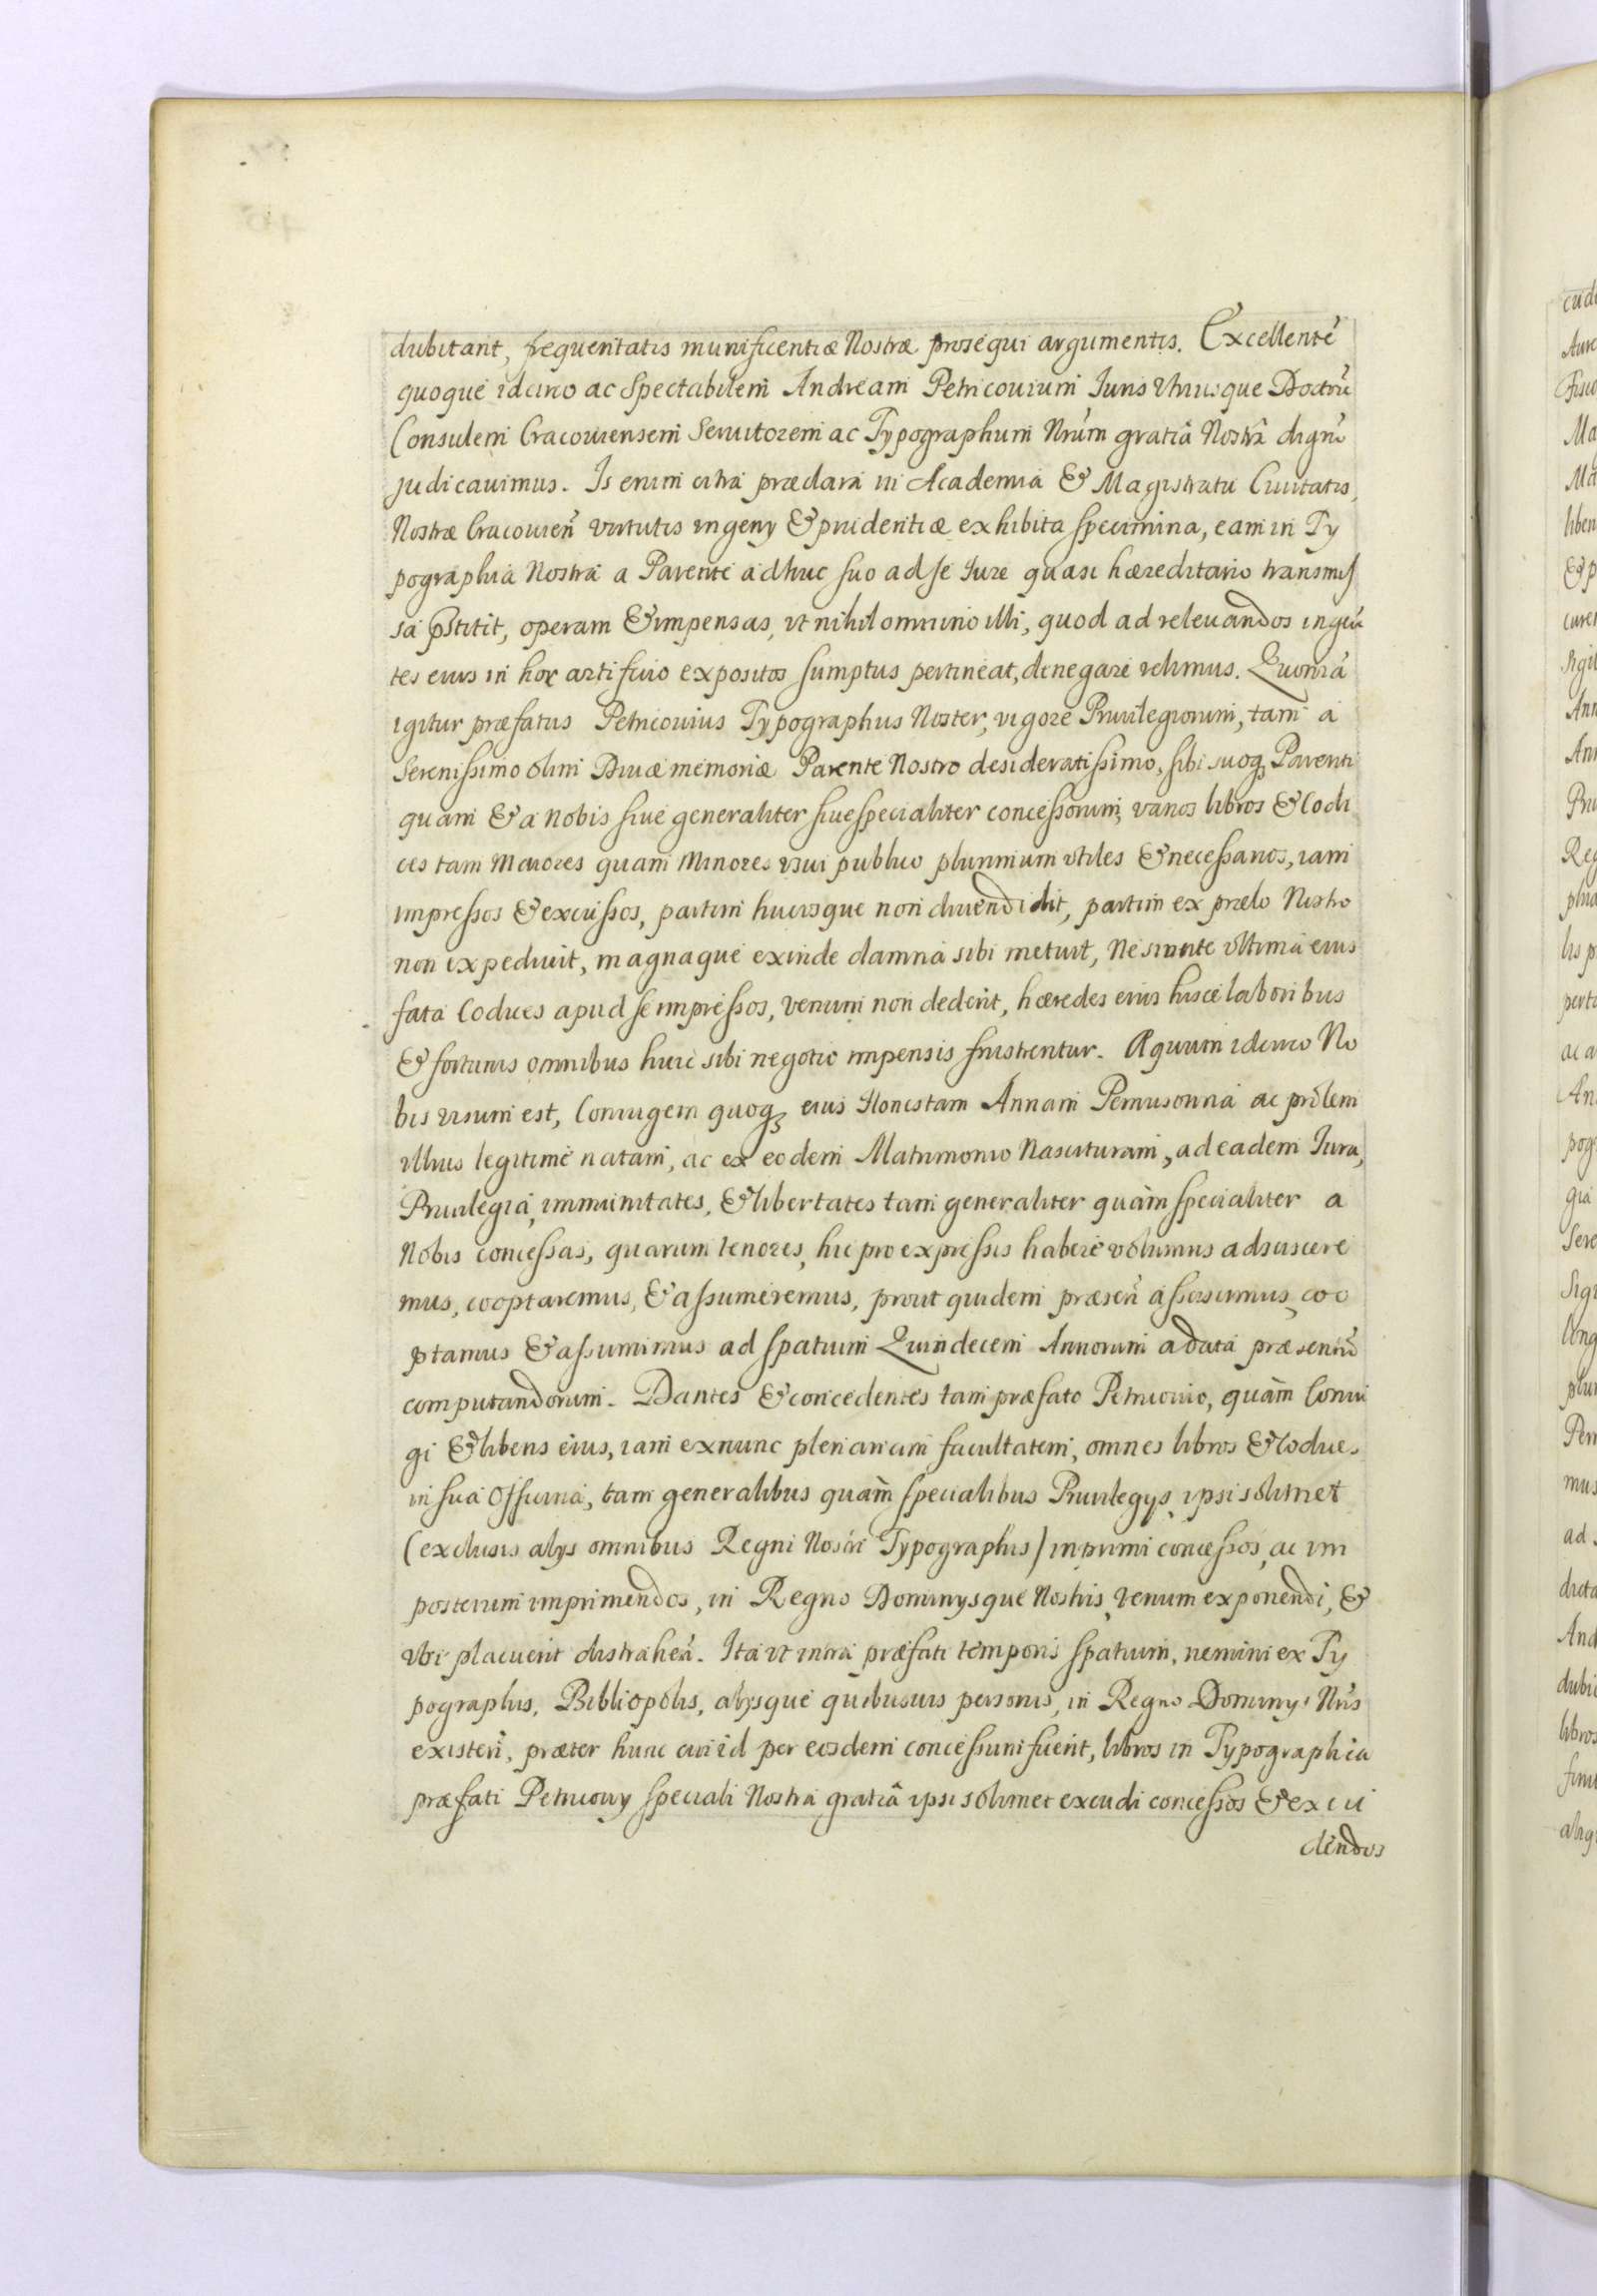 dubitant, frequentatis munificentiæ Nostræ prosequi argumentis. Excellentẽ
quoque idcirco ac Spectabilem Andream Petricouium Iuris Vtriusque Doctorẽ
Consulem Cracouiensem Seruitorem ac Typographum Nrũm gratiâ Nostrâ dignũ
judicauimus. Is enim citra præclara in Academia & Magistratu Ciuitatis,
Nostræ Cracouieñ virtutis ingenÿ & prudentiæ exhibita specimina, eam in Ty
pographia Nostra a Parente adhuc suo ad se Iure quasi hæreditario transmis
sa p̃stitit, operam & impensas, vt nihil omnino illi, quod ad releuandos ingẽ
tes eius in hoc artificio expositos sumptus pertineat, denegare velimus. Quoniã
igitur præfatus Petricouius Typographus Noster, vigore Priuilegiorum, tam a
Serenissimo olim Diuæ memoriæ Parente Nostro desideratissimo, sibi suoq Parenti
quam & a Nobis siue generaliter siue specialiter concessorum, varios libros & Codi
ces tam Maiores quam Minores vsui publico plurimum vtiles & necessarios, iam
impressos & excussos, partim hucusque non diuendidit, partim ex prælo Nostro
non expediuit, magnaque exinde damna sibi metuit, Ne si ante vltima eius
fata Codices apud se impressos, venum non dederit, hæredes eius hisce laboribus
& fortunis omnibus huic sibi negotio impensis frustrentur. Æquum idcirco No
bis visum est, Coniugem quoq eius Honestam Annam Pernusonna ac prolem
illius legitimè natam, ac ex eodem Matrimonio Nascituram, ad eadem Iura,
Priuilegia, immunitates, & libertates tam generaliter quàm specialiter a
Nobis concessas, quarum tenores, hic pro expressis habere volumus adsuscere
mus, cooptaremus, & assumeremus, prout quidem præseñ assissimus, coo
ptamus & assumimus ad spatium Quindecem Annorum a data præsentiũ
computandorum. Dantes & concedentes tam præfato Petricouio, quàm Coniu
gi & liberis eius, iam ex nunc plenariam facultatem, omnes libros & Codices
in sua Officina, tam generalibus quàm specialibus Priuilegÿs ipsi solimet
(exclusis alÿs omnibus Regni Nostri Typographis) inprimi concessos, ac im
posterum imprimendos, in Regno Dominÿsque Nostris, venum exponendi, &
vbi placuerit distraheñ. Ita vt intra præfati temporis spatium, nemini ex Ty
pographis, Bibliopolis, alÿsque quibusuis personis, in Regno Dominÿs Nr̃is
existeñ, præter hunc cui id per eosdem concessum fuerit, libros in Typographia
præfati Petricouÿ speciali Nostra gratiâ ipsi solimet excudi concessos & excu
dendos